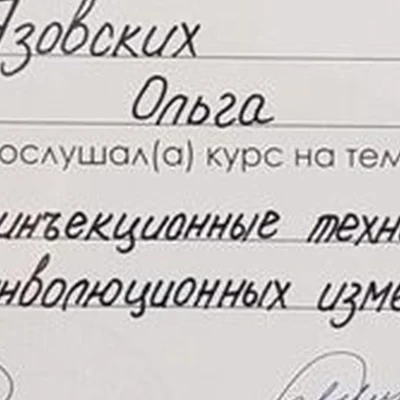 Язовских
Ольга
ослушал(а) курс на тем
инъекционные техн
нволюционных изме